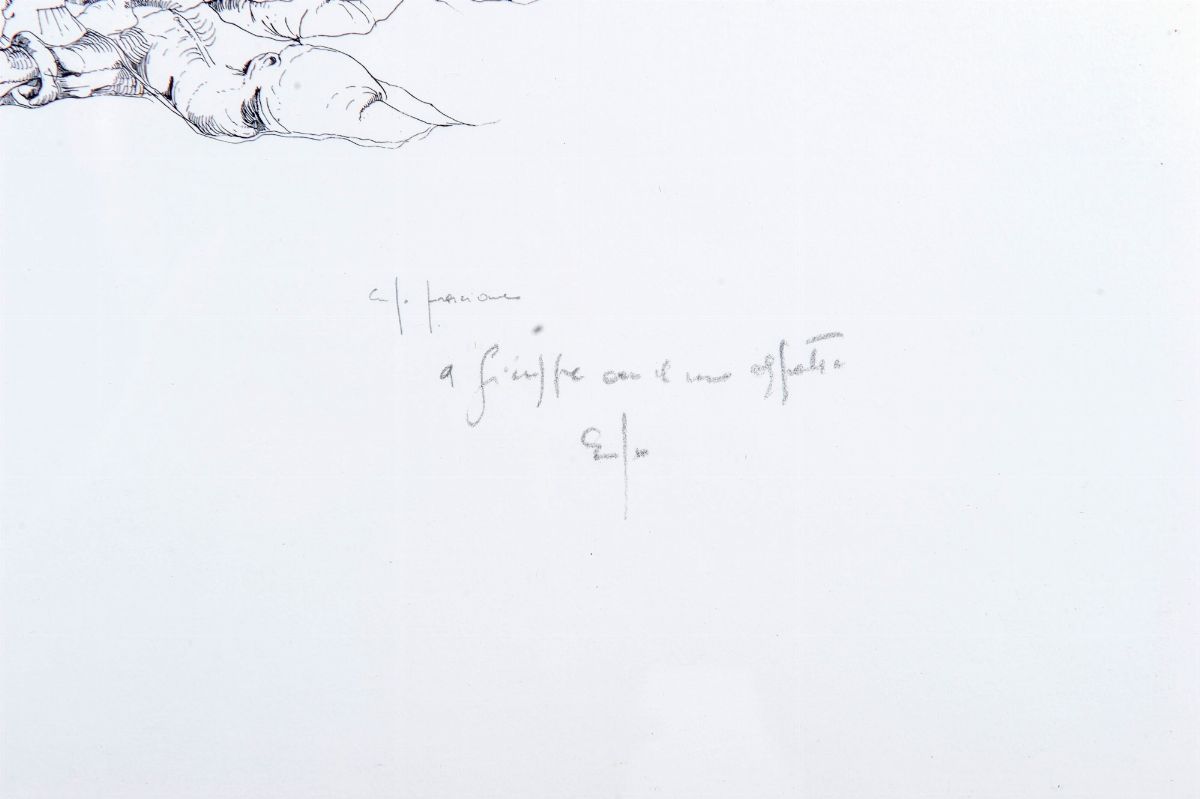 Enzo frascione
a Giuseppe con il mio affetto
Enzo